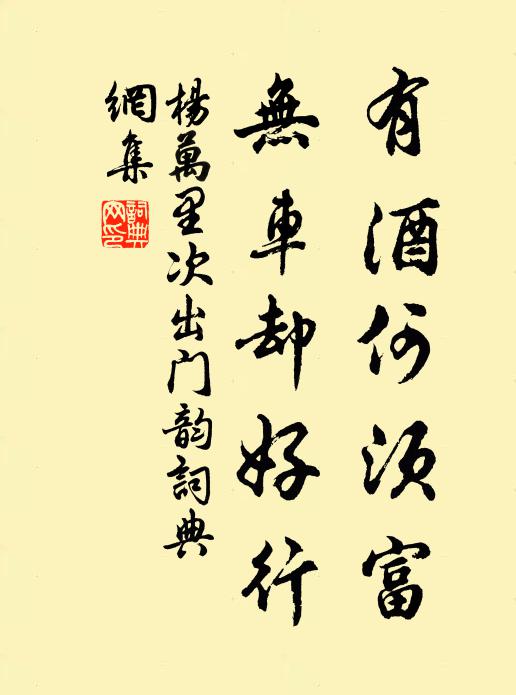 有酒何須富
無車却好行
楊萬里次出門韵詞典
網集
詞典
网印